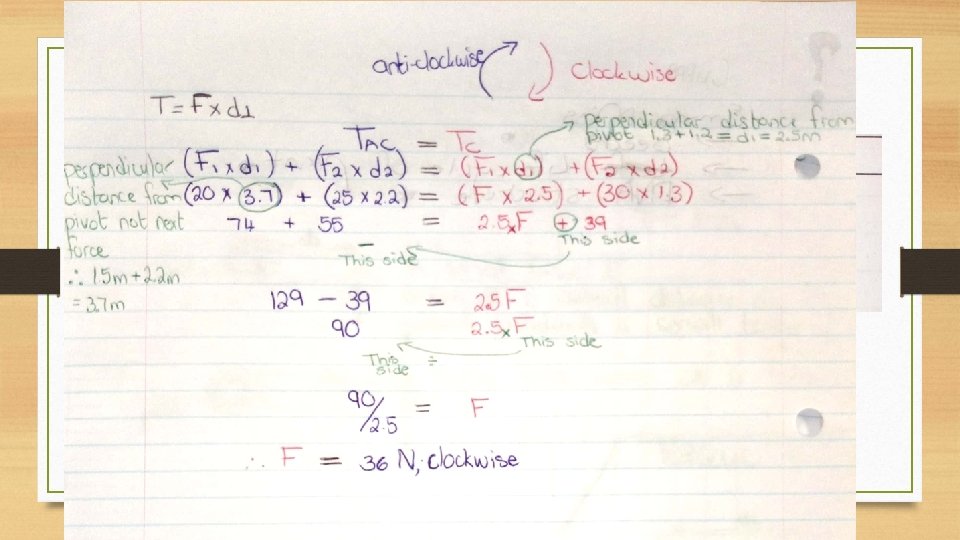 anti-clockwise
Clockwise
T = F x d⊥
perpendicular distance from
pivot 1.3 + 1.2 = d₁ = 2.5m
TAC = TC
perpendicular
distance from
pivot not next
force
∴ 1.5m + 2.2m
= 3.7m
(F₁ x d₁) + (F₂ x d₂) = (F₁ x d₁) + (F₂ x d₂)
(20 x 3.7) + (25 x 2.2) = (F x 2.5) + (30 x 1.3)
74 + 55 = 2.5xF + 39
This side
− 
This side
129 − 39 = 2.5F
90 2.5xF
This side
This
side ÷
90/2.5 = F
∴ F = 36 N, clockwise